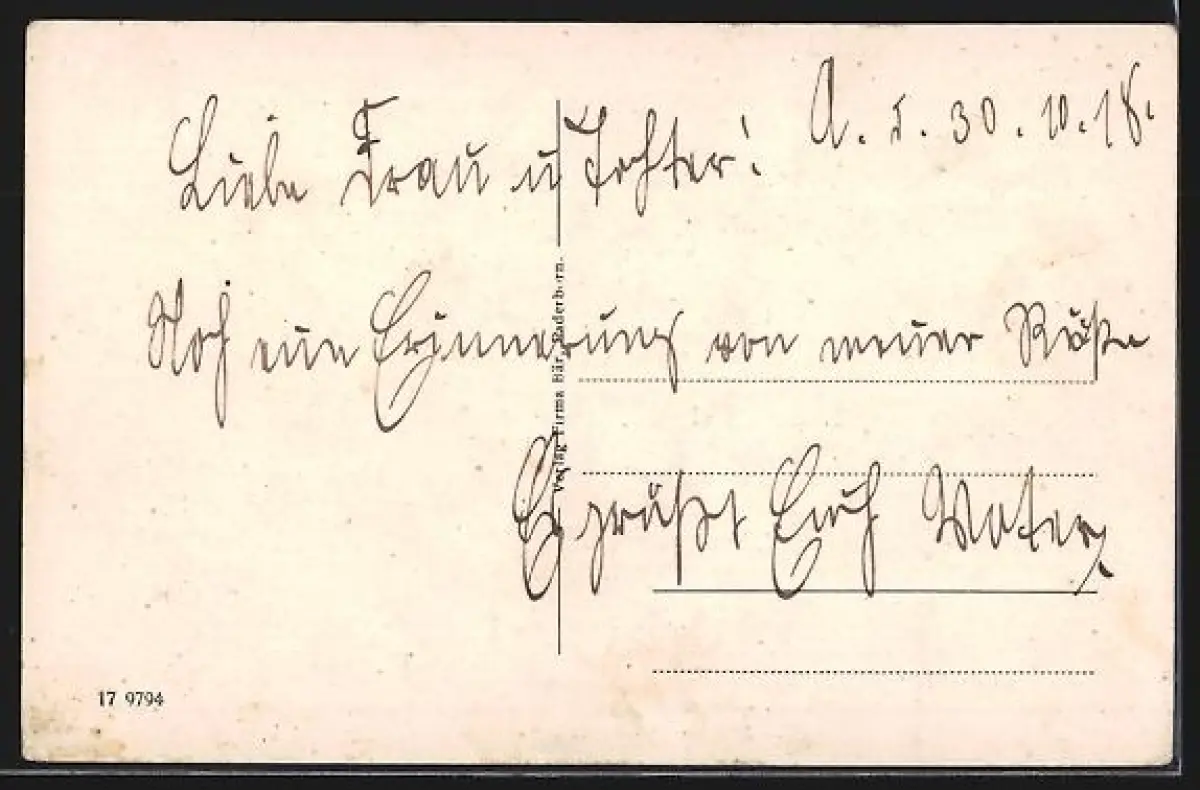 A. d. 30.10.18.
Liebe Frau u Tochter!
Noch eine Erinnerung von meiner Reise
Es grüßt Euch Vater
Verlag Firma Bär, Paderborn.
17 9794